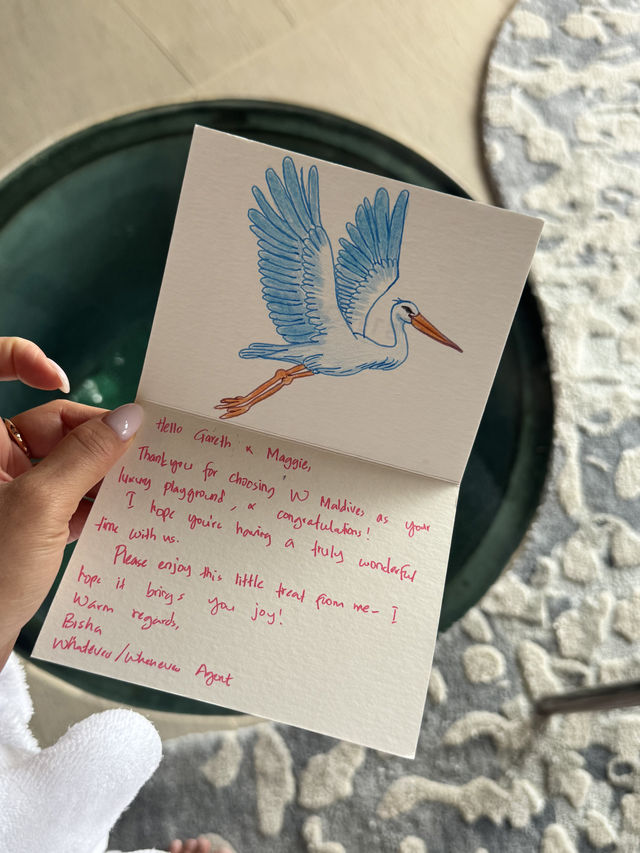 Hello Gareth & Maggie,
Thankyou for choosing W Maldives as your
luxury playground, & congratulations!
I hope you're having a truly wonderful
time with us.
Please enjoy this little treat from me- I
hope it brings you joy!
Warm regards,
Bisha
Whatever/Whenever Agent